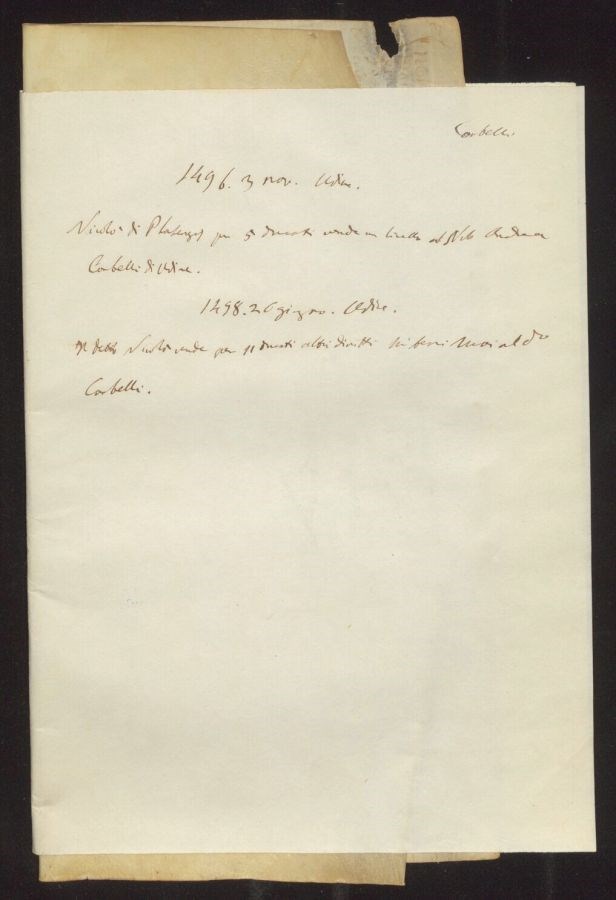 Corbelli.
1496. 3 nov. Udine.
Nicolò di per 5 ducati vende un livello al Nob Andrea
Corbelli di Udine.
1498. 26 giugno. Udine.
Il detto Nicolò vende per 11 ducati altri diritti beni suoi al do
Corbelli.